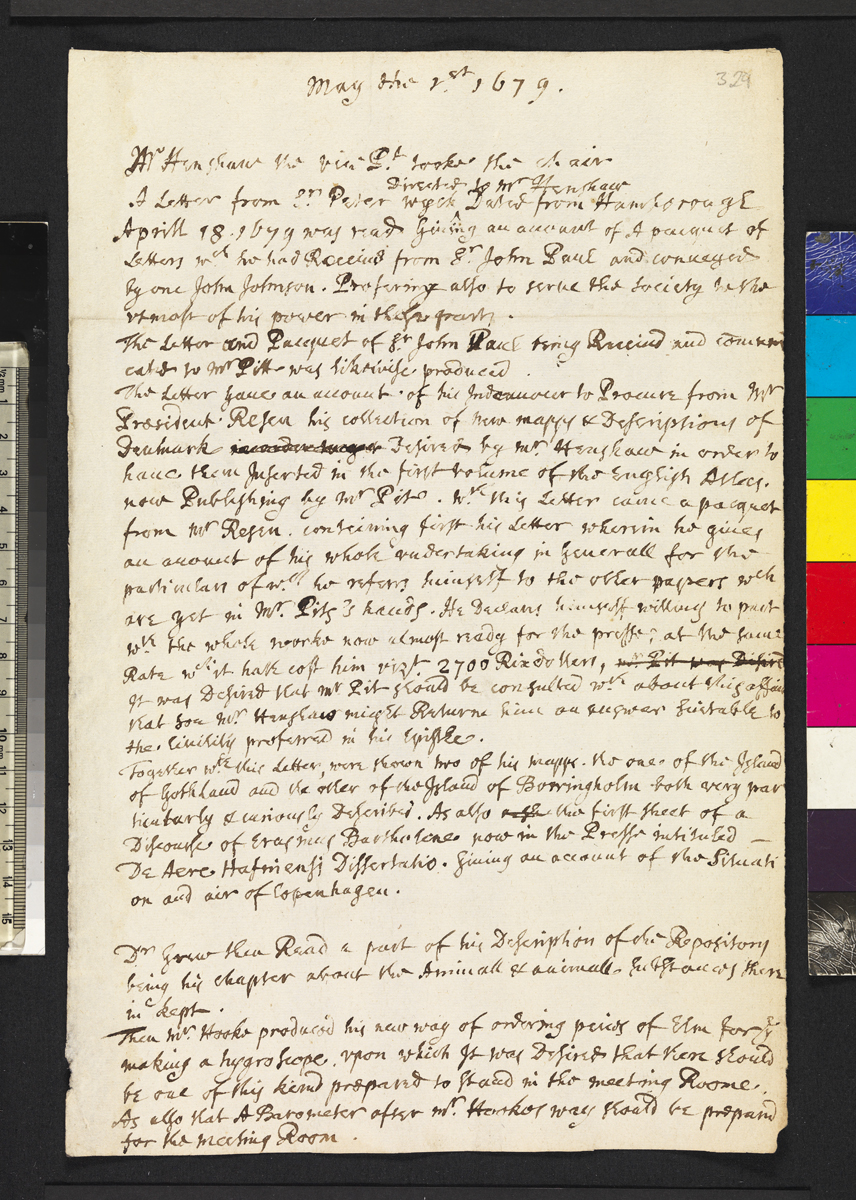 May the 1st 1679.
329
Mr Henshaw the vice Pt tooke the chair
Directed to Mr Henshaw
A Letter from Sr Peter Wyck Dated from Hamborough
Aprill 18. 1679 was read Giving an account of A pacquet of
Letters wch he had Receiud from Sr John Paul and conveyed
by one John Johnson. Profering also to serue the Society to the
vtmost of his power in those parts.
The Letter and Pacquet of Sr John Paul being Receiud and comuni
cated to Mr Pitt was likewise produced.
The Letter gaue an account of his Indeauour to Procure from Mr
Præsident Resen his collection of new mapps & Descriptions of
Denmark in order to get Desired by Mr Henshaw in order to
haue them Inserted in the first volume of the English Atlas.
now Publishing by Mr Pit. wth this Letter came a pacquet
from Mr Resen. contayning first his Letter wherein he giues
an account of his whole vndertaking in Generall for the
particulars of wch he referrs himself to the other papers wch
are yet in Mr. Pits's hands. He Declars himself willing to part
wth the whole worke now almost ready for the presse; at the same
Rate wch it hath cost him vizt. 2700 Rixdollers, Mr Pit was Desird
It was Desired that Mr Pit should be consulted wth about this affair
that soe Mr Henshaw might Returne him an answer suitable to
the civility proferred in his Epistle.
Together wth this Letter, were shown two of his mapps. the one of the Island
of Gothland and the other of the Island of Borringholm both very par
ticularly & curiously Described. As also the first sheet of a
Discourse of Erasmus Bartholine now in the Presse intituled —
De Aere Hafniensi Dissertatio. Giving an account of the Situati
on and air of Copenhagen.
Dr Grew then Read a part of his Description of the Repository
being his chapter about the Animall & animall substances there
in kept.
Then Mr. Hooke produced his new way of ordering peices of Elm for ye
making a hygroscope. vpon which It was Desired that there should
be one of this kind prepared to stand in the meeting Roome.
As also that A Barometer after Mr. Hookes way should be prepared
for the meeting Room.